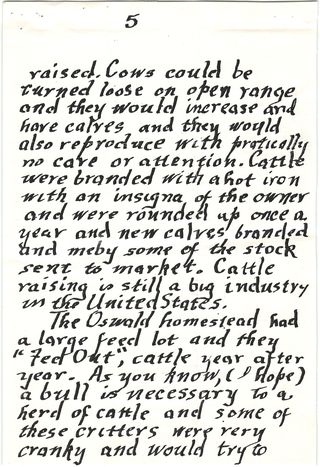 5
raised. Cows could be
turned loose on open range
and they would increase and
have calves and they would
also reproduce with pratically
no care or attention. Cattle
were branded with a hot iron
with an insigna of the owner
and were rounded up once a
year and new calves branded
and meby some of the stock
sent to market. Cattle
raising is still a big industry
in the United States.
The Oswald homestead had
a large feed lot and they
"Fed Out", cattle year after
year. As you know, (I hope)
a bull is necessary to a
herd of cattle and some of
these critters were very
cranky and would try to